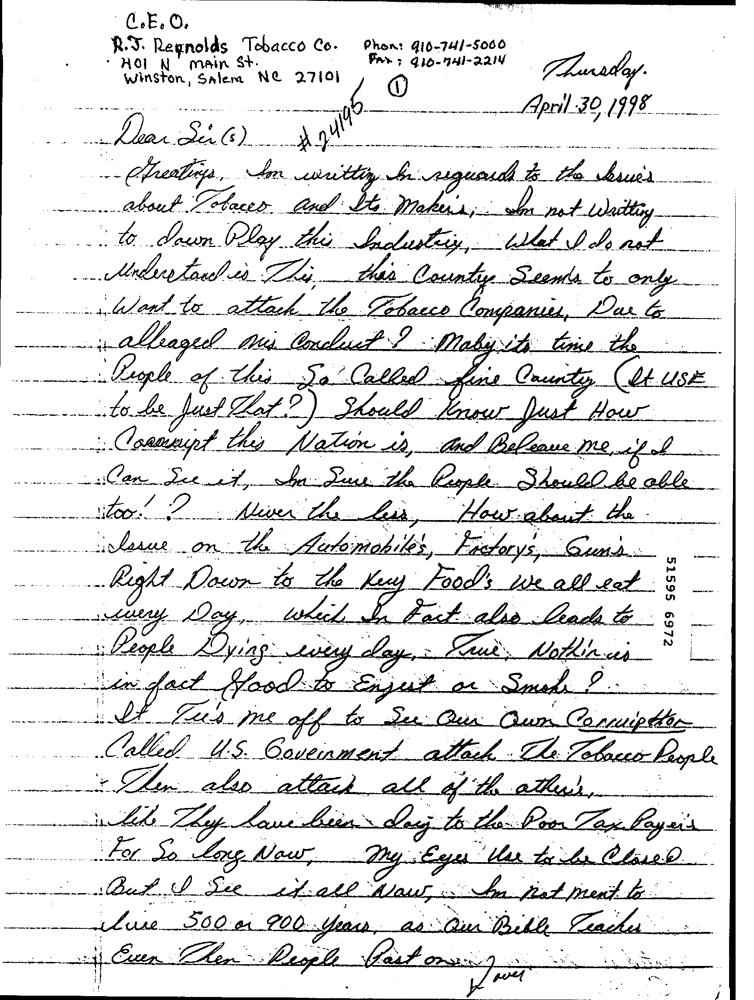 C.E.O.
R.J. Reynolds Tobacco Co. Phon: 910-741-5000
401 N Main St. Fax: 910-741-2214
Winston, Salem NC 27101
①
Thursday.
April 30, 1998
#24195
Dear Sir(s)
Greatings, Im writting In reguards to the Issue's
about Tobacco and Its Maker's, Im not Writting
to down Play this Industriy, What I do not
Understand is This, this Country Seems to only
Want to attack the Tobacco Companies, Due to
alleaged mis Conduct? Maby its time the
People of this So Called fine Country (It USE
to be Just That?) Should Know Just How
this Nation is, and Beleave me, if I
Can See it, Im Sure the People Should be able
too!? Never the less, How about the
Issue on the Automobile's, Factory's, Gun's
Right Down to the Very Food's we all eat
every Day, which In Fact also leads to
People Dying every day, True, Nothin is
in fact Good to Enjest or Smoke?
It Tee's me off to See Our Own Corruipter
Called U.S. Government attack The Tobacco People
Then also attack all of the other's,
like They have been doig to the Poor Tax Payer's
For So long Now, My Eyes Use to be Closed
But I See it all Now, Im not ment to
live 500 or 900 years, as Our Bible Teaches
Even Then People Past on
over
51595 6972